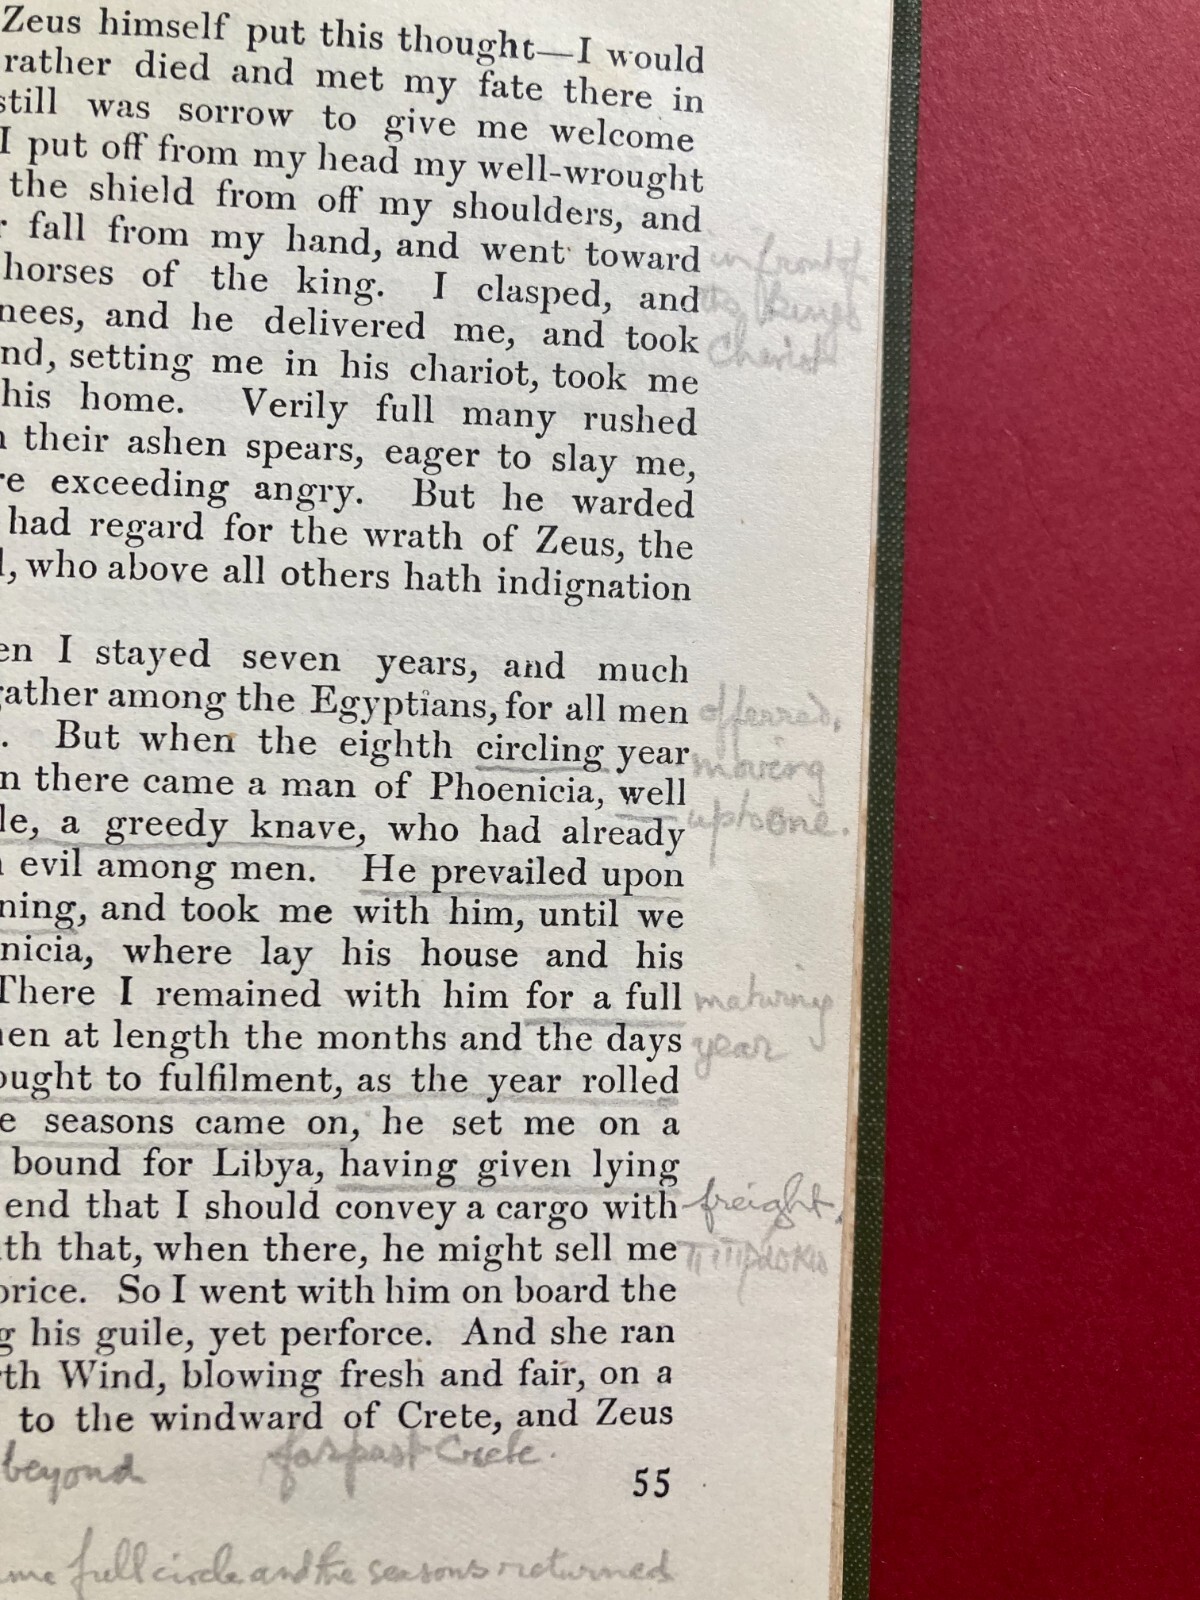 Zeus himself put this thought—I would
rather died and met my fate there in
still was sorrow to give me welcome
I put off from my head my well-wrought
the shield from off my shoulders, and
r fall from my hand, and went toward
in front of
horses of the king. I clasped, and
the Kings
nees, and he delivered me, and took
Chariot
nd, setting me in his chariot, took me
his home. Verily full many rushed
n their ashen spears, eager to slay me,
re exceeding angry. But he warded
had regard for the wrath of Zeus, the
l, who above all others hath indignation
en I stayed seven years, and much
gather among the Egyptians, for all men
offerred,
. But when the eighth circling year
moving
n there came a man of Phoenicia, well
up to one.
le, a greedy knave, who had already
n evil among men. He prevailed upon
ning, and took me with him, until we
nicia, where lay his house and his
There I remained with him for a full
maturing
hen at length the months and the days
year
ought to fulfilment, as the year rolled
e seasons came on, he set me on a
bound for Libya, having given lying
end that I should convey a cargo with
freight,
ith that, when there, he might sell me
price. So I went with him on board the
g his guile, yet perforce. And she ran
rth Wind, blowing fresh and fair, on a
to the windward of Crete, and Zeus
beyond far past Crete.
55
me full circle and the seasons returned